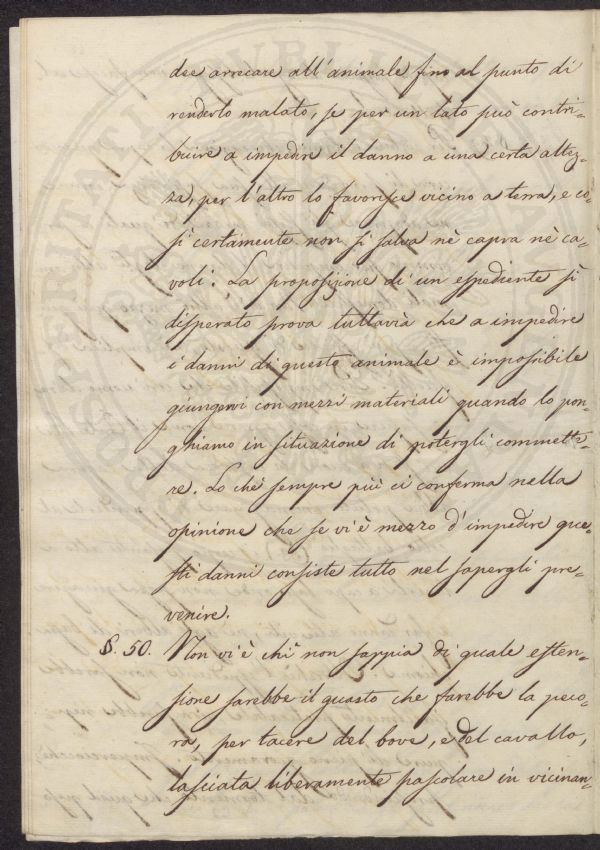 dee arrecare all'animale fino al punto di
renderlo malato, se per un lato può contri-
buire a impedire il danno a una certa altez-
za, per l'altro lo favorisce vicino a terra, e co-
sì certamente non si salva nè capra nè ca-
voli. La proposizione di un espediente sì
disperato prova tuttavià che a impedire
i danni di questo animale è impossibile
giungervi con mezzi materiali quando lo pon-
ghiamo in situazione di potergli commette-
re. Lo chè sempre più ci conferma nella
opinione che se vi è mezzo d'impedire que-
sti danni consiste tutto nel sapergli pre-
venire.
§. 50. Non vi è chi non sappia di quale esten-
sione sarebbe il guasto che farebbe la peco-
ra, per tacere del bove, e del cavallo,
lasciata liberamente pascolare in vicinan-